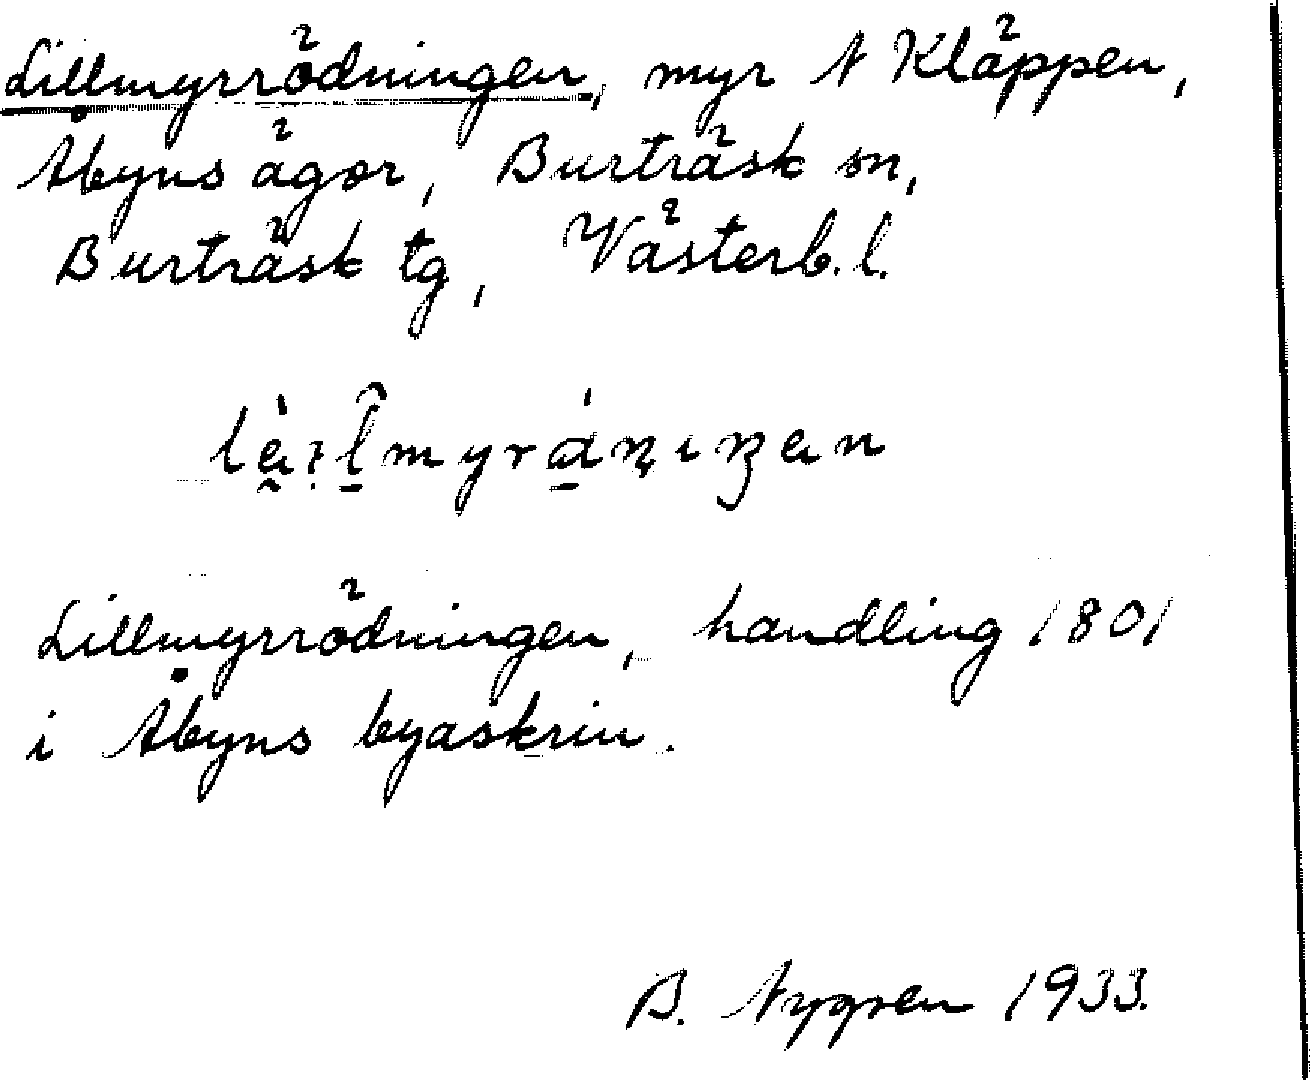 Lillmyrrödningen, myr N Kläppen,
Åbyns ägor, Burträsk sn,
Burträsk tg, Västerb. l.
Lillmyrrödningen, handling 1801
i Åbyns byaskrin.
B. Nygren 1933.